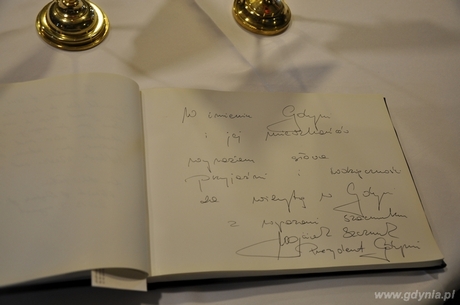 W imieniu Gdyni
i jej mieszkańców
wyrażam słowa
przyjaźni i wdzięczności
za wizytę w Gdyni
z wyrazami szacunku
Wojciech Szczurek
Prezydent Gdyni
www.gdynia.pl